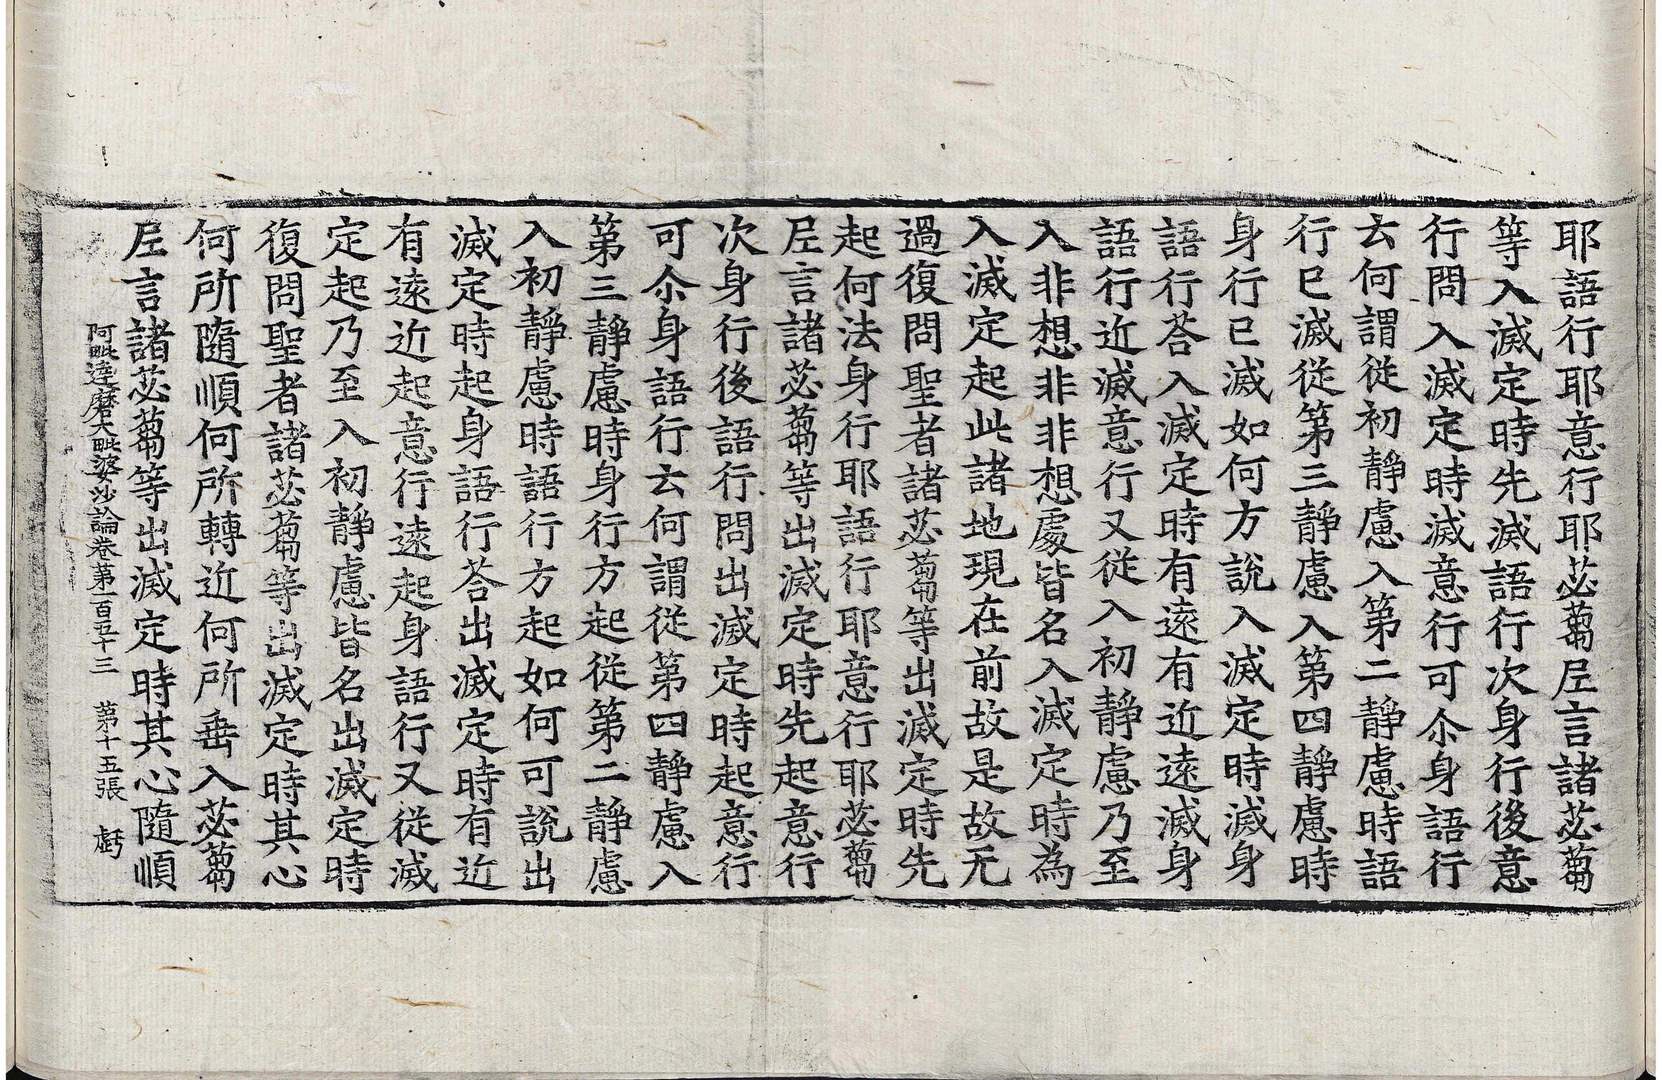 耶語行耶意行耶苾蒭㞐言諸苾蒭
等入滅定時先滅語行次身行後意
行問入滅定時滅意行可尒身語行
云何謂從初靜慮入第二靜慮時語
行已滅從第三靜慮入第四靜慮時
身行已滅如何方說入滅定時滅身
語行荅入滅定時有遠有近遠滅身
語行近滅意行又從入初靜慮乃至
入非想非非想處皆名入滅定時為
入滅定起此諸地現在前故是故无
過復問聖者諸苾蒭等出滅定時先
起何法身行耶語行耶意行耶苾蒭
㞐言諸苾蒭等出滅定時先起意行
次身行後語行問出滅定時起意行
可尒身語行云何謂從第四靜慮入
第三靜慮時身行方起從第二靜慮
入初靜慮時語行方起如何可說出
滅定時起身語行荅出滅定時有近
有遠近起意行遠起身語行又從滅
定起乃至入初靜慮皆名出滅定時
復問聖者諸苾蒭等出滅定時其心
何所隨順何所轉近何所垂入苾蒭
㞐言諸苾蒭等出滅定時其心隨順
阿毗達磨大毗婆沙論卷第一百五十三 第十五張 虧